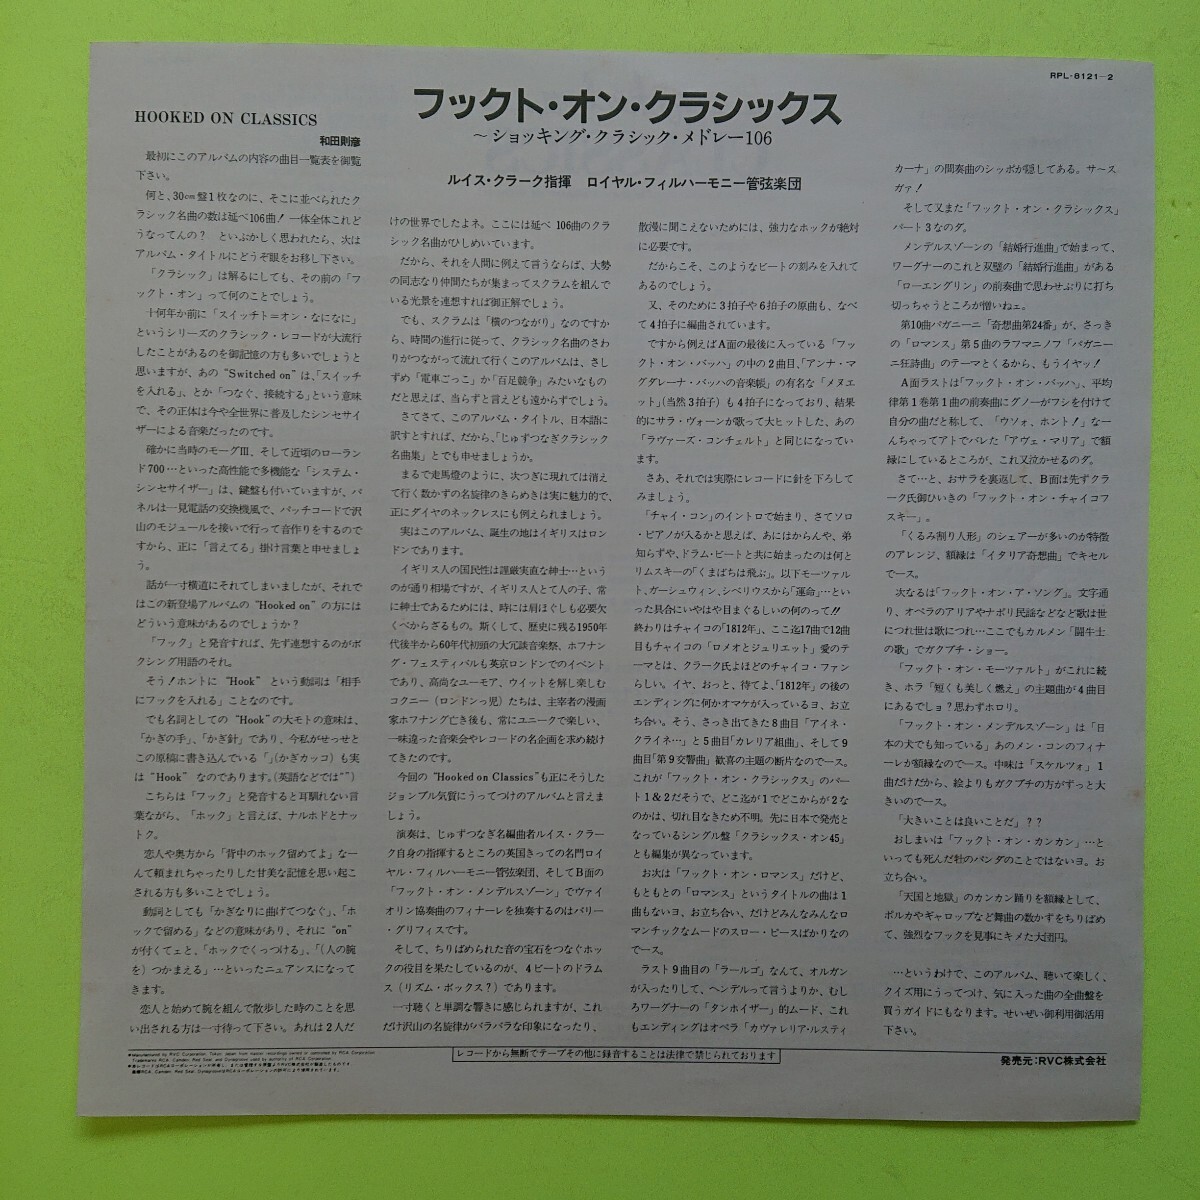 RPL-8121-2
フックト・オン・クラシックス
〜ショッキング・クラシック・メドレー106
ルイス・クラーク指揮 ロイヤル・フィルハーモニー管弦楽団
HOOKED ON CLASSICS
和田則彦
最初にこのアルバムの内容の曲目一覧表を御覧
下さい。
何と、30cm盤1枚なのに、そこに並べられたク
ラシック名曲の数は延べ106曲! 一体全体これど
うなってんの? といぶかしく思われたら、次は
アルバム・タイトルにどうぞ眼をお移し下さい。
「クラシック」は解るにしても、その前の「フ
ックト・オン」って何のことでしょう。
十何年か前に「スイッチト=オン・なになに」
というシリーズのクラシック・レコードが大流行
したことがあるのを御記憶の方も多いでしょうと
思いますが、あの“Switched on”は、「スイッチ
を入れる」、とか「つなぐ、接続する」という意味
で、その正体は今や全世界に普及したシンセサイ
ザーによる音楽だったのです。
確かに当時のモーグIII、そして近頃のローラン
ド700…といった高性能で多機能な「システム・
シンセサイザー」は、鍵盤も付いていますが、パ
ネルは一見電話の交換機風で、パッチコードで沢
山のモジュールを接いで行って音作りをするので
すから、正に「言えてる」掛け言葉と申せましょ
う。
話が一寸横道にそれてしまいましたが、それで
はこの新登場アルバムの“Hooked on”の方には
どういう意味があるのでしょうか?
「フック」と発音すれば、先ず連想するのがボ
クシング用語のそれ。
そう!ホントに“Hook”という動詞は「相手
にフックを入れる」ことなのです。
でも名詞としての“Hook”の大モトの意味は、
「かぎの手」、「かぎ針」であり、今私がせっせと
この原稿に書き込んでいる「」(かぎカッコ)も実
は“Hook”なのであります。(英語などでは“”)
こちらは「フック」と発音すると耳馴れない言
葉ながら、「ホック」と言えば、ナルホドとナッ
トク。
恋人や奥方から「背中のホック留めてよ」なー
んて頼まれちゃったりした甘美な記憶を思い起こ
される方も多いことでしょう。
動詞としても「かぎなりに曲げてつなぐ」、「ホ
ックで留める」などの意味があり、それに“on”
が付くてェと、「ホックでくっつける」、「(人の腕
を)つかまえる」…といったニュアンスになって
きます。
恋人と始めて腕を組んで散歩した時のことを思
い出される方は一寸待って下さい。あれは2人だ
けの世界でしたよネ。ここには延べ 106曲のクラ
シック名曲がひしめいています。
だから、それを人間に例えて言うならば、大勢
の同志なり仲間たちが集まってスクラムを組んで
いる光景を連想すれば御正解でしょう。
でも、スクラムは「横のつながり」なのですか
ら、時間の進行に従って、クラシック名曲のさわ
りがつながって流れて行くこのアルバムは、さし
ずめ「電車ごっこ」か「百足競争」みたいなもの
だと思えば、当らずと言えども遠からずでしょう。
さてさて、このアルバム・タイトル、日本語に
訳すとすれば、だから、「じゅずつなぎクラシック
名曲集」とでも申せましょうか。
まるで走馬燈のように、次つぎに現れては消え
て行く数かずの名旋律のきらめきは実に魅力的で、
正にダイヤのネックレスにも例えられましょう。
実はこのアルバム、誕生の地はイギリスはロン
ドンであります。
イギリス人の国民性は謹厳実直な紳士…という
のが通り相場ですが、イギリス人とて人の子、常
に紳士であるためには、時には肩ほぐしも必要欠
くべからざるもの。斯くして、歴史に残る1950年
代後半から60年代初頭の大冗談音楽祭、ホフナン
グ・フェスティバルも英京ロンドンでのイベント
であり、高尚なユーモア、ウイットを解し楽しむ
コクニー(ロンドンっ児)たちは、主宰者の漫画
家ホフナング亡き後も、常にユニークで楽しい、
一味違った音楽会やレコードの名企画を求め続け
てきたのです。
今回の“Hooked on Classics”も正にそうした
ジョンブル気質にうってつけのアルバムと言えま
しょう。
演奏は、じゅずつなぎ名編曲者ルイス・クラー
ク自身の指揮するところの英国きっての名門ロイ
ヤル・フィルハーモニー管弦楽団、そしてB面の
「フックト・オン・メンデルスゾーン」でヴァイ
オリン協奏曲のフィナーレを独奏するのはバリー
・グリフィスです。
そして、ちりばめられた音の宝石をつなぐホッ
クの役目を果たしているのが、4ビートのドラム
ス(リズム・ボックス?)であります。
一寸聴くと単調な響きに感じられますが、これ
だけ沢山の名旋律がバラバラな印象になったり、
散漫に聞こえないためには、強力なホックが絶対
に必要です。
だからこそ、このようなビートの刻みを入れて
あるのでしょう。
又、そのために3拍子や6拍子の原曲も、なべ
て4拍子に編曲されています。
ですから例えばA面の最後に入っている「フッ
クト・オン・バッハ」の中の2曲目、「アンナ・マ
グダレーナ・バッハの音楽帳」の有名な「メヌエ
ット」(当然3拍子)も4拍子になっており、結果
的にサラ・ヴォーンが歌って大ヒットした、あの
「ラヴァーズ・コンチェルト」と同じになってい
ます。
さあ、それでは実際にレコードに針を下ろして
みましょう。
「チャイ・コン」のイントロで始まり、さてソロ
・ピアノが入るかと思えば、あにはからんや、弟
知らずや、ドラム・ビートと共に始まったのは何と
リムスキーの「くまばちは飛ぶ」。以下モーツァル
ト、ガーシュウィン、シベリウスから「運命」…とい
った具合にいやはや目まぐるしいの何のって!!
終わりはチャイコの「1812年」、ここ迄17曲で12曲
目もチャイコの「ロメオとジュリエット」愛のテ
ーマとは、クラーク氏よほどのチャイコ・ファン
らしい。イヤ、おっと、待てよ、「1812年」の後の
エンディングに何かオマケが入っているヨ、お立
ち合い。そう、さっき出てきた8曲目「アイネ・
クライネ…」と5曲目「カレリア組曲」、そして9
曲目「第9交響曲」歓喜の主題の断片なのでース。
これが「フックト・オン・クラシックス」のパー
ト1&2だそうで、どこ迄が1でどこからが2な
のかは、切れ目なきため不明。先に日本で発売と
なっているシングル盤「クラシックス・オン45」
とも編集が異なっています。
お次は「フックト・オン・ロマンス」だけど、
もともとの「ロマンス」というタイトルの曲は1
曲もないヨ、お立ち合い、だけどみんなみんなロ
マンチックなムードのスロー・ピースばかりなの
でース。
ラスト9曲目の「ラールゴ」なんて、オルガン
が入ったりして、ヘンデルって言うよりか、むし
ろワーグナーの「タンホイザー」的ムード、これ
もエンディングはオペラ「カヴァレリア・ルスティ
カーナ」の間奏曲のシッポが隠してある。サースガァ!
そして又また「フックト・オン・クラシックス」
パート3なのダ。
メンデルスゾーンの「結婚行進曲」で始まって、
ワーグナーのこれと双璧の「結婚行進曲」がある
「ローエングリン」の前奏曲で思わせぶりに打ち
切っちゃうところが憎いねェ。
第10曲パガニーニ「奇想曲第24番」が、さっき
の「ロマンス」第5曲のラフマニノフ「パガニー
ニ狂詩曲」のテーマとくるから、もうイヤッ!
A面ラストは「フックト・オン・バッハ」、平均
律第1巻第1曲の前奏曲にグノーがフシを付けて
自分の曲だと称して、「ウソォ、ホント!」なー
んちゃってアトでバレた「アヴェ・マリア」で額
縁にしているところが、これ又泣かせるのダ。
さて…と、おサラを裏返して、B面は先ずクラー
ク氏御ひいきの「フックト・オン・チャイコフ
スキー」。
「くるみ割り人形」のシェアーが多いのが特徴
のアレンジ、額縁は「イタリア奇想曲」でキセル
でース。
次なるは「フックト・オン・ア・ソング」。文字通
り、オペラのアリアやナポリ民謡などなど歌は世
につれ世は歌につれ…ここでもカルメン「闘牛士
の歌」でガクブチ・ショー。
「フックト・オン・モーツァルト」がこれに続
き、ホラ「短くも美しく燃え」の主題曲が4曲目
にあるでしョ?思わずホロリ。
「フックト・オン・メンデルスゾーン」は「日
本の犬でも知っている」あのメン・コンのフィナ
ーレが額縁なのでース。中味は「スケルツォ」1
曲だけだから、絵よりもガクブチの方がずっと大
きいのでース。
「大きいことは良いことだ」??
おしまいは「フックト・オン・カンカン」…と
いっても死んだ牡のパンダのことではないヨ。お
立ち合い。
「天国と地獄」のカンカン踊りを額縁として、
ポルカやギャロップなど舞曲の数かずをちりばめ
て、強烈なフックを見事にキメた大団円。
…というわけで、このアルバム、聴いて楽しく、
クイズ用にうってつけ、気に入った曲の全曲盤を
買うガイドにもなります。せいぜい御利用御活用
下さい。
レコードから無断でテープその他に録音することは法律で禁じられております
発売元:RVC株式会社